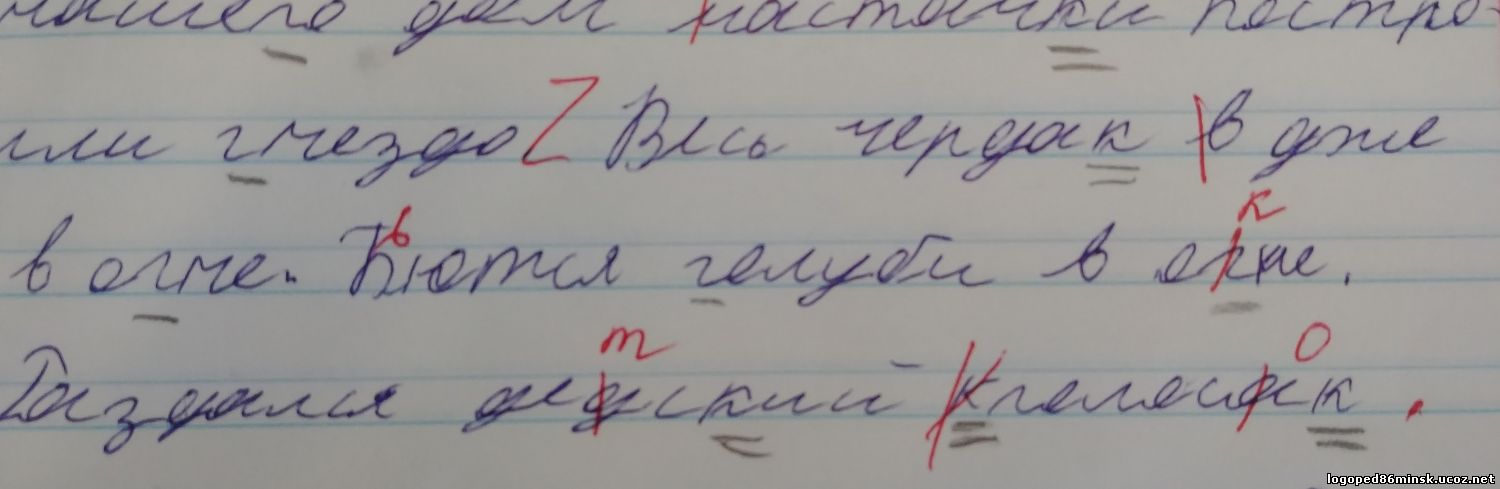 нашего дом ластачки постро-
или гнездо Z Весь чердак в дже
ь к
в огне. Бются голуби в огне.
т о
Раздался дедский кголосак .
logoped86minsk.ucoz.net